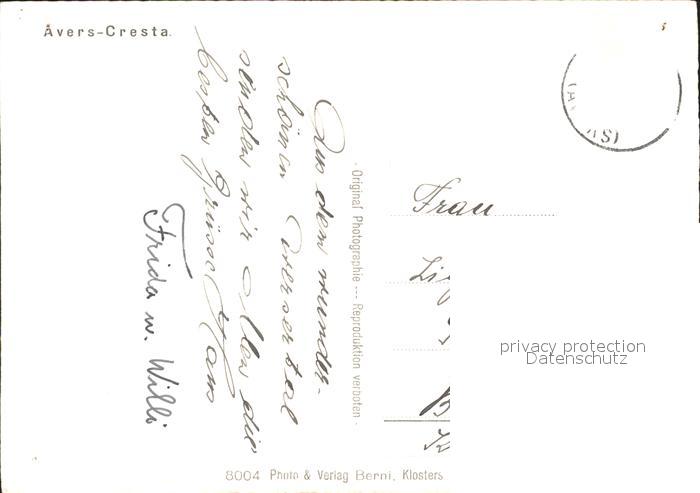 Avers-Cresta.
Aus dem wunder-
schönen Aversertal
senden wir Allen die
besten Grüsse Hans
Frida u. Willi
· Original Photographie --- Reproduktion verboten ·
Frau
privacy protection
Datenschutz
8004 Photo & Verlag Berni, Klosters